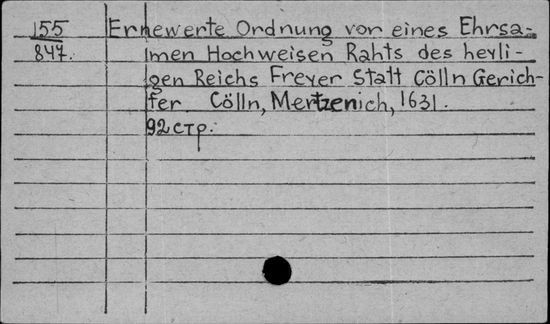 155 Ernewerte Ordnung vor eines Ehrsa-
847. men Hochweisen Rahts des heyli-
gen Reichs Freyer Statt Cölln Gerich-
ter. Cölln, Mertzenich, 1631.
92 стр.